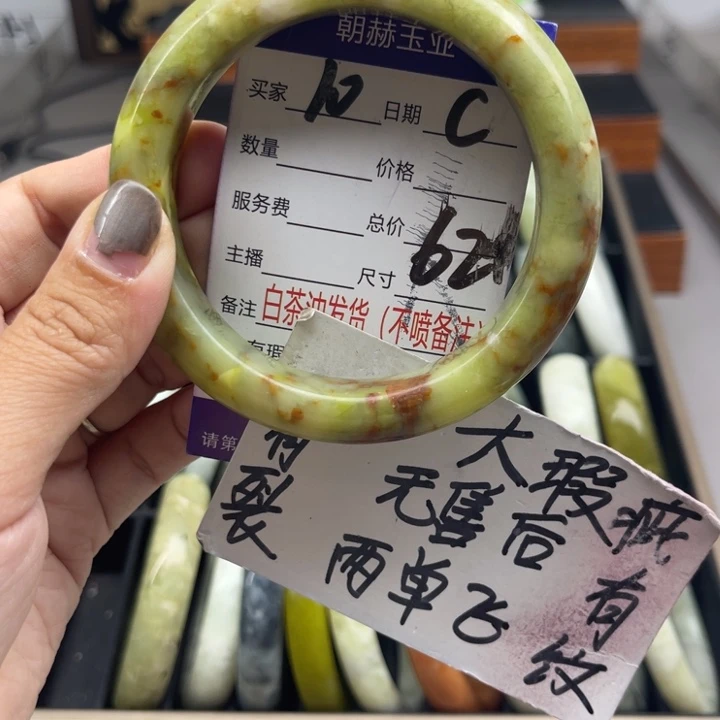 朝赫玉壶
买家 10 日期 C
数量 价格
服务费 总价
主播 尺寸 62
备注 白茶冲发货（不喷备注）
有瑕
请第
大瑕疵有纹
有裂
无售后
两单飞